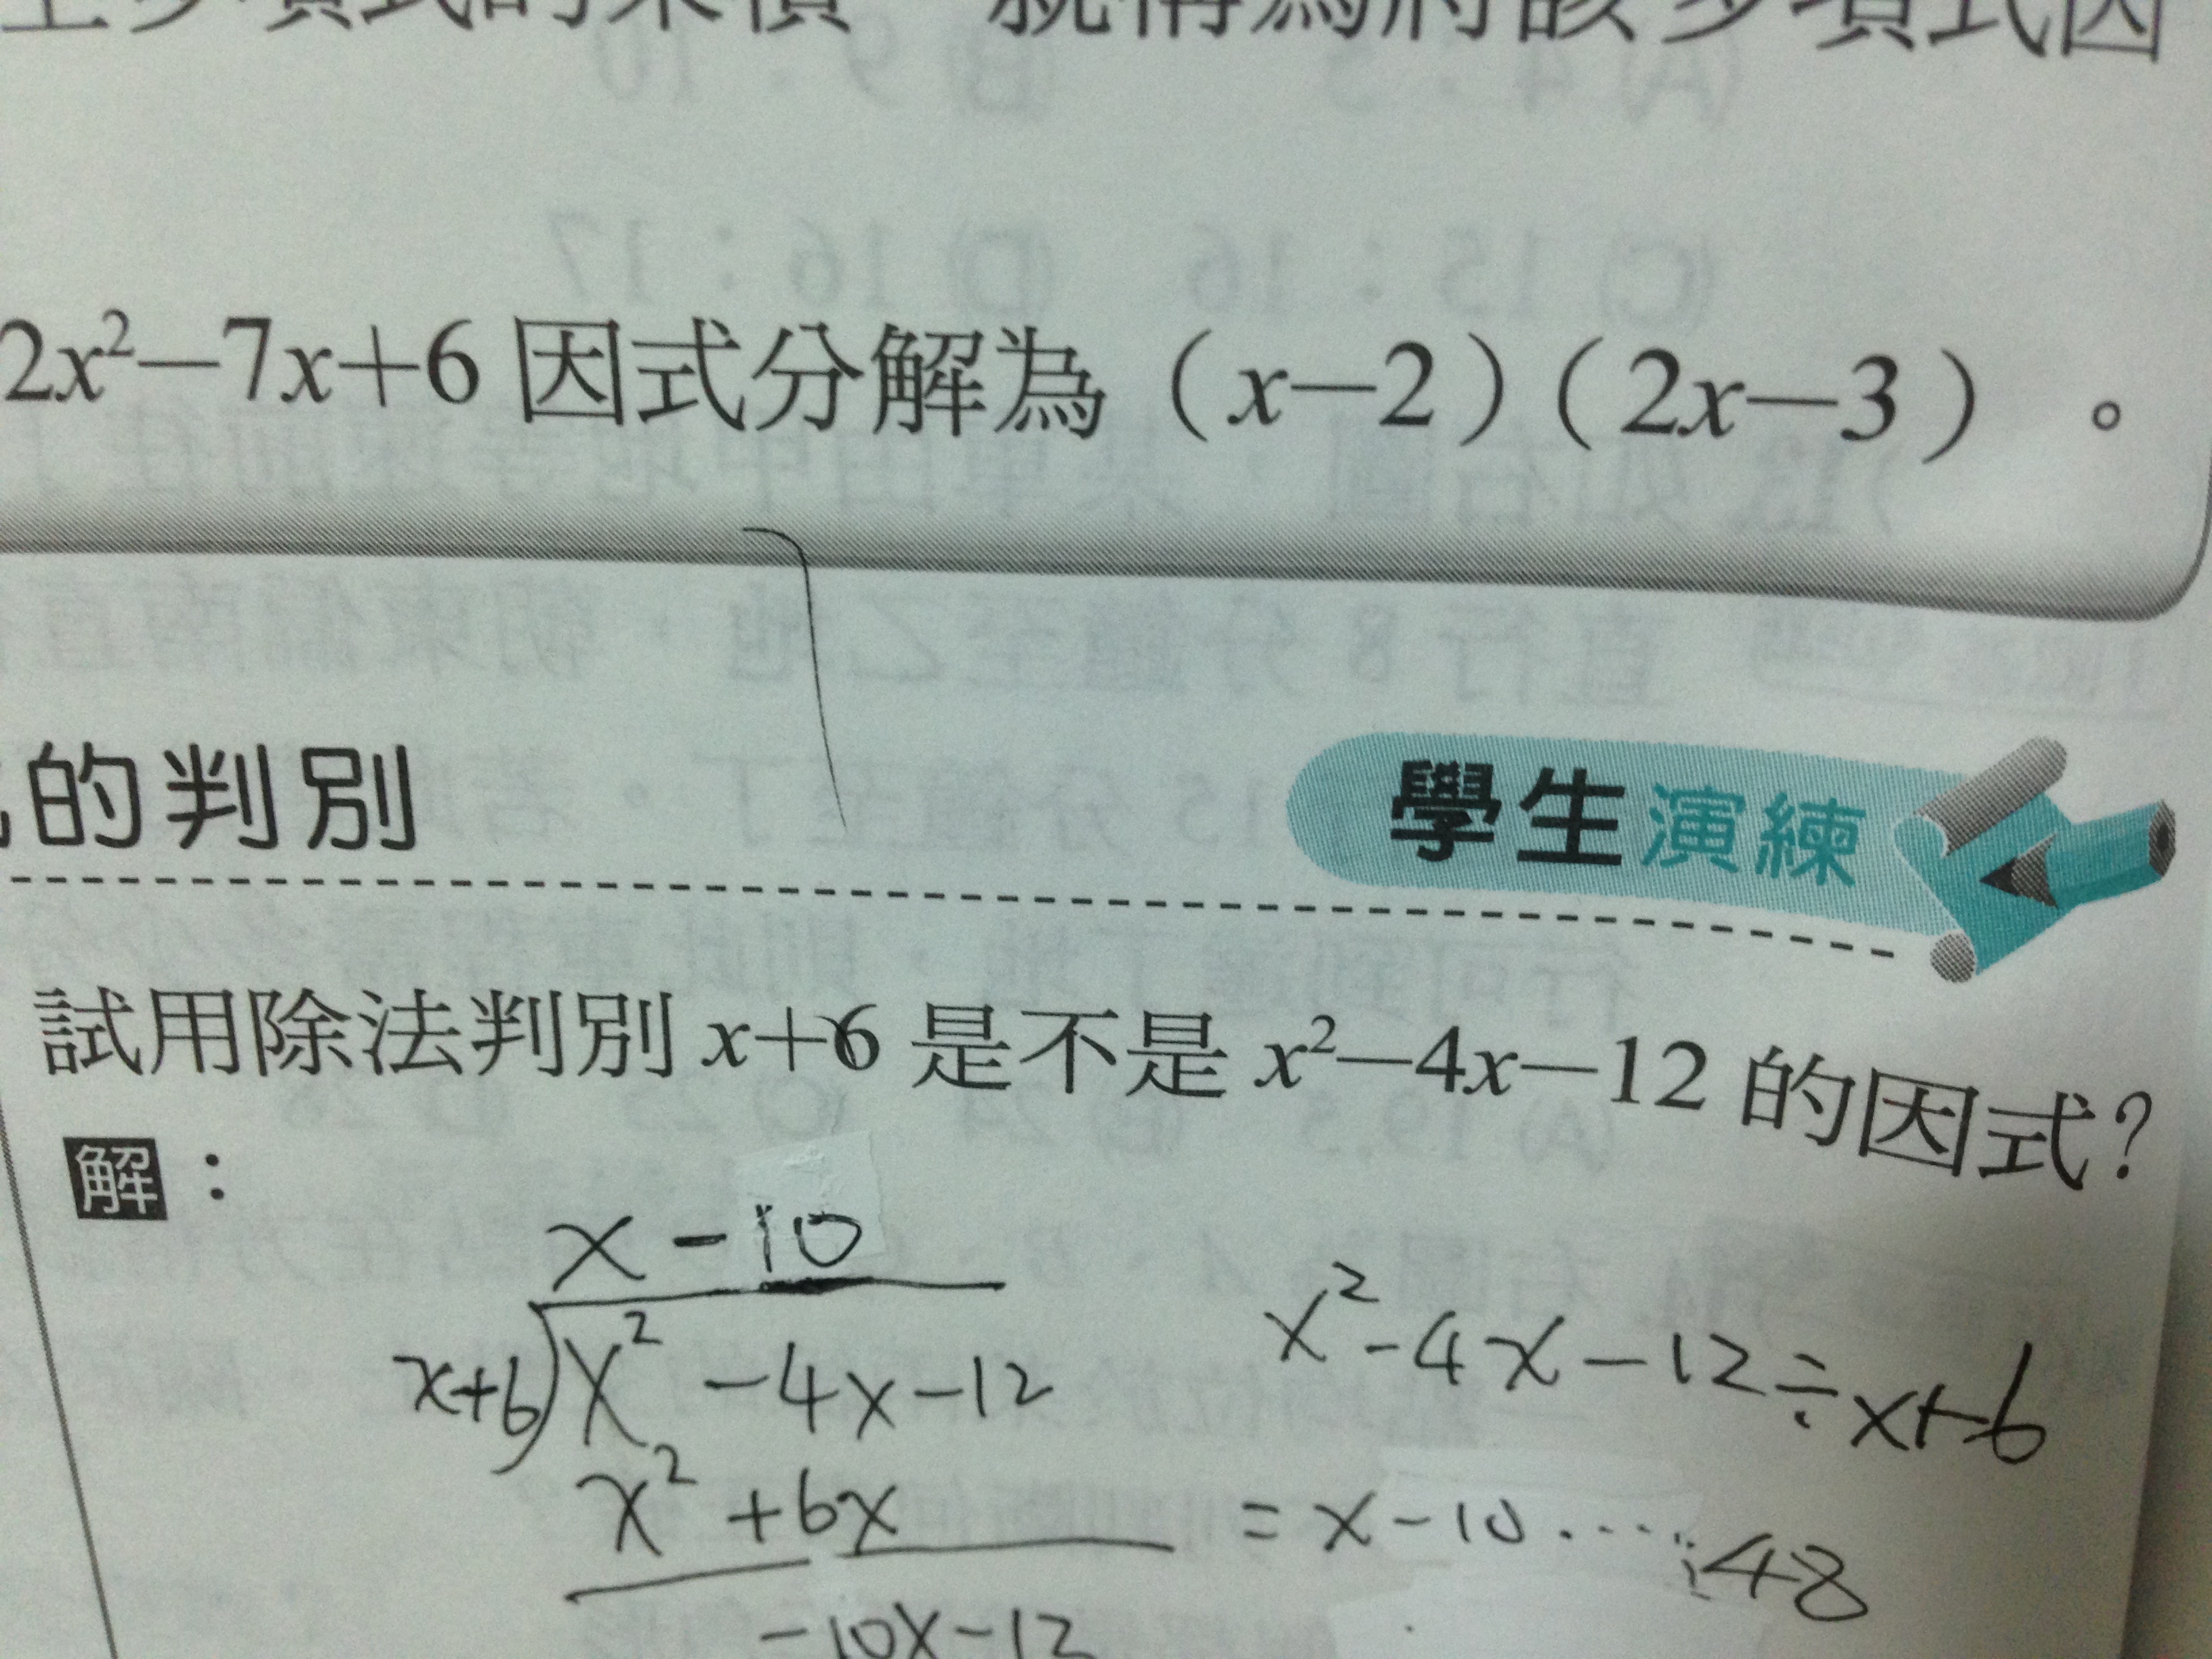 多項式的乘積，就稱為將該多項式因
2x²－7x＋6 因式分解為（x－2）（2x－3）。
的判別
學生演練
試用除法判別 x＋6 是不是 x²－4x－12 的因式？
解：
x -10
x+6)x² -4x-12
x² +6x
-10x-12
x²-4x-12÷x+6
=x-10.....48